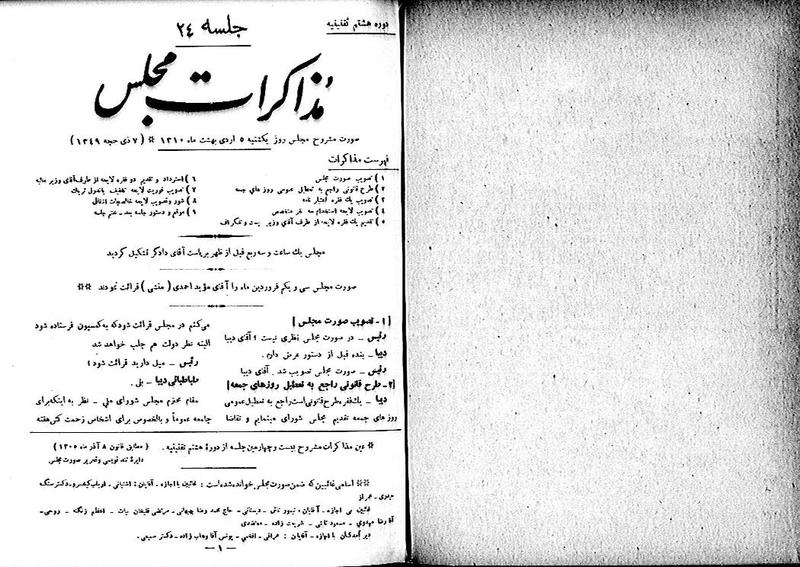 دوره هشتم تقنینیه
جلسه ۲۴
مذاکرات مجلس
صورت مشروح مجلس روز یکشنبه ۵ اردی بهشت ماه ۱۳۱۰ * (۷ ذی حجه ۱۳۴۹)
فهرست مذاکرات
۱) تصویب صورت مجلس
۲) طرح قانونی راجع به تعطیل عمومی روز های جمعه
۳) تصویب یك فقره اعتبار نامه
۴) تصویب لایحه استخدام سه نفر متخصص
۵) تقدیم یك فقره لایحه از طرف آقای وزیر پست و تلگراف
۶) استرداد و تقدیم دو فقره لایحه از طرف آقای وزیر مالیه
۷) تصویب فوریت لایحه تخفیف باندرل تریاك
۸) شور و تصویب لایحه خالصجات انتقالی
۹) موقع و دستور جلسه بعد ـ ختم جلسه
مجلس یك ساعت و سه ربع قبل از ظهر بریاست آقای دادگر تشکیل گردید
صورت مجلس سی و یکم فروردین ماه را آقای مؤید احمدی (منشی) قرائت نمودند **
[۱ ـ تصویب صورت مجلس]
رئیس ـ در صورت مجلس نظری نیست؟ آقای دیبا
دیبا ـ بنده قبل از دستور عرض دارم.
رئیس ـ صورت مجلس تصویب شد. آقای دیبا
[۲ـ طرح قانونی راجع به تعطیل روزهای جمعه]
دیبا ـ یك فقره طرح قانونی است راجع به تعطیل عمومی
روز های جمعه تقدیم مجلس شورای مینمایم و تقاضا
می کنم در مجلس قرائت شود که به کمسیون فرستاده شود
البته نظر دولت هم جلب خواهد شد
رئیس ـ میل دارید قرائت شود؟
طباطبائی دیبا ـ بلی.
مقام محترم مجلس شورای ملی ـ نظر به اینکه برای
جامعه عموماً و بالخصوص برای اشخاص زحمت کش هفته
* عین مذاکرات مشروح بیست و چهارمین جلسه از دورۀ هشتم تقنینیه. (مطابق قانون ۸ آذر ماه ۱۳۰۵)
دایرۀ تند نویسی و تحریر صورت مجلس
** اسامی غائبین که ضمن صورت مجلس خوانده شده است: غائبین با اجازه ـ آقایان: آشتیانی ـ ارباب کیخسرو ـ دکتر سنگ
غائبین بی اجازه ـ آقایان: تیمور تاش ـ دبستانی ـ حاج محمد رضا بهبهانی ـ مرتضی قلیخان بیات ـ اعظم زنگنه ـ روحی ـ
آقا رضا مهدوی ـ مسعود ثابتی ـ شریعت زاده ـ معتضدی
دیر آمدگان با اجازه ـ آقایان: عراقی ـ افخمی ـ یونس آقا وهاب زاده ـ دکتر سمیعی.
ـ ۱ ـ